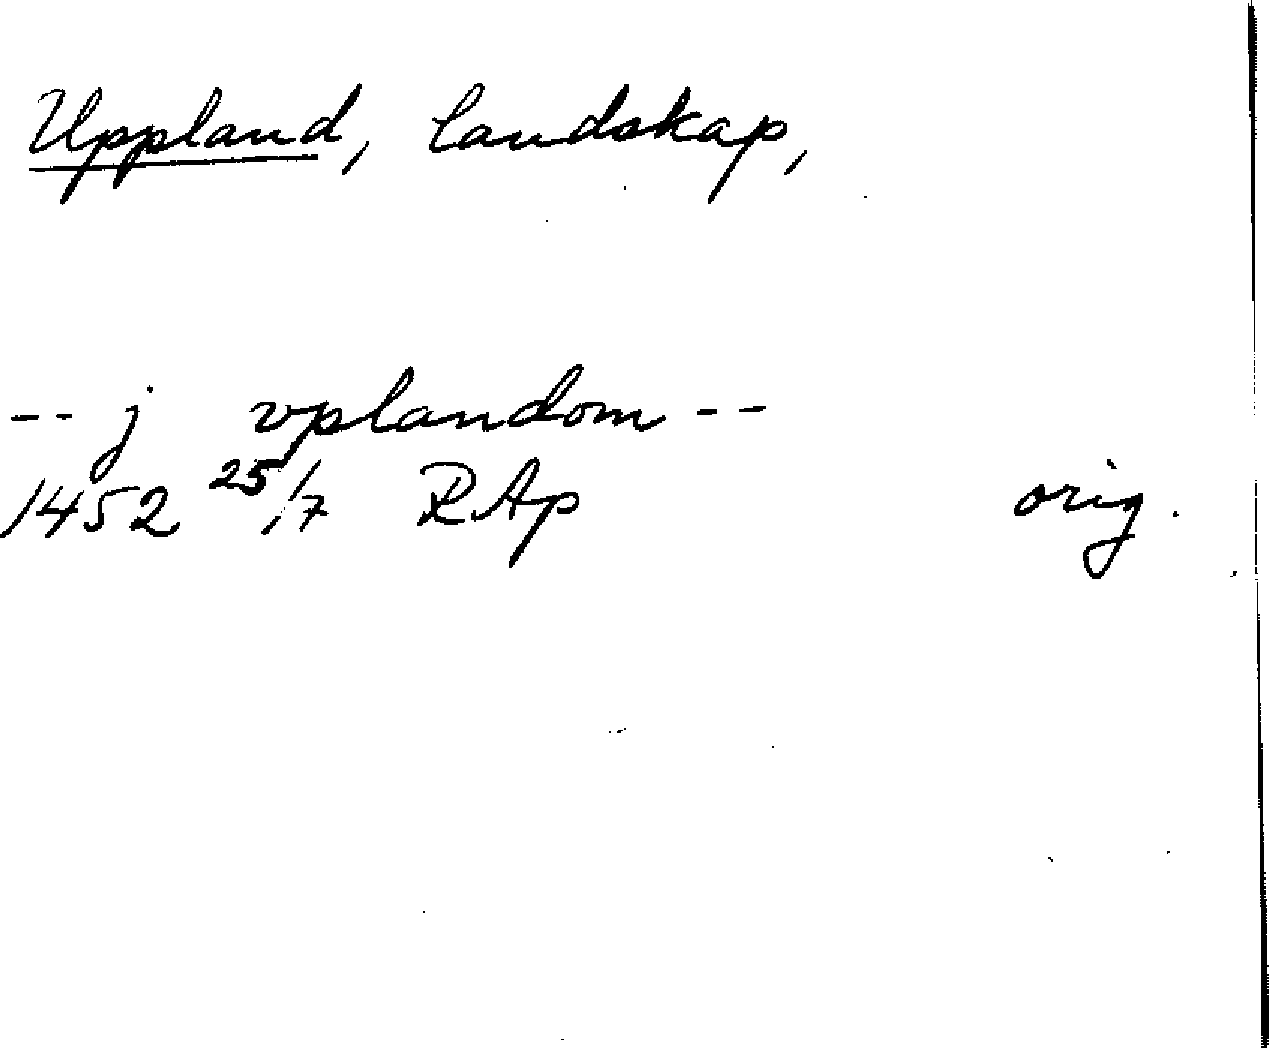 Uppland, landskap,
-- j vplandom --
1452 25/7 RAp orig.